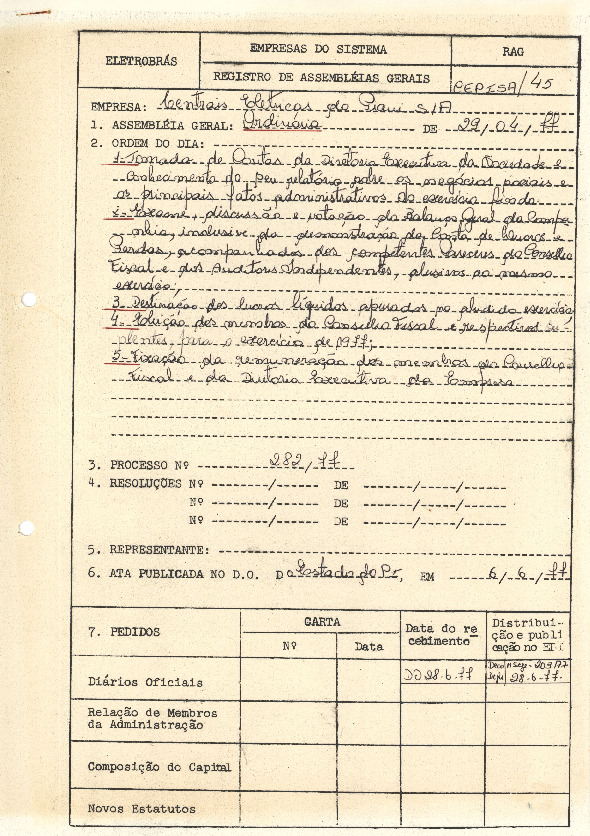 ELETROBRÁS
EMPRESAS DO SISTEMA
RAG
REGISTRO DE ASSEMBLÉIAS GERAIS
CEPISA/45
EMPRESA: Centrais Elétricas do Piauí S/A
1. ASSEMBLÉIA GERAL: Ordinária DE 29/04/77
2. ORDEM DO DIA:
1- Tomada de Contas da Diretoria Executiva da Sociedade e
conhecimento do seu relatório sobre os negócios sociais e
os principais fatos administrativos do exercício findo
2- Exame, discussão e votação do Balanço Geral da Compa
nhia, inclusive da demonstração da Conta de Lucros e
Perdas, acompanhados dos competentes Pareceres do Conselho
Fiscal e dos Auditores Independentes, alusivos ao mesmo
exercício;
3- Destinação dos lucros líquidos apurados no aludido exercício
4- Eleição dos membros do Conselho Fiscal e respectivos su-
plentes, para o exercício de 1977;
5- Fixação da remuneração dos membros do Conselho
Fiscal e da Diretoria Executiva da Empresa
3. PROCESSO Nº 282/77
4. RESOLUÇÕES Nº / DE / /
Nº / DE / /
Nº / DE / /
5. REPRESENTANTE:
6. ATA PUBLICADA NO D.O. Do Estado do PI, EM 6/6/77
7. PEDIDOS
CARTA
Nº
Data
Data do re
cebimento
Distribui-
ção e publi
cação no
Diários Oficiais
DO 28.6.77
209/77
28-6-77
Relação de Membros
da Administração
Composição do Capital
Novos Estatutos